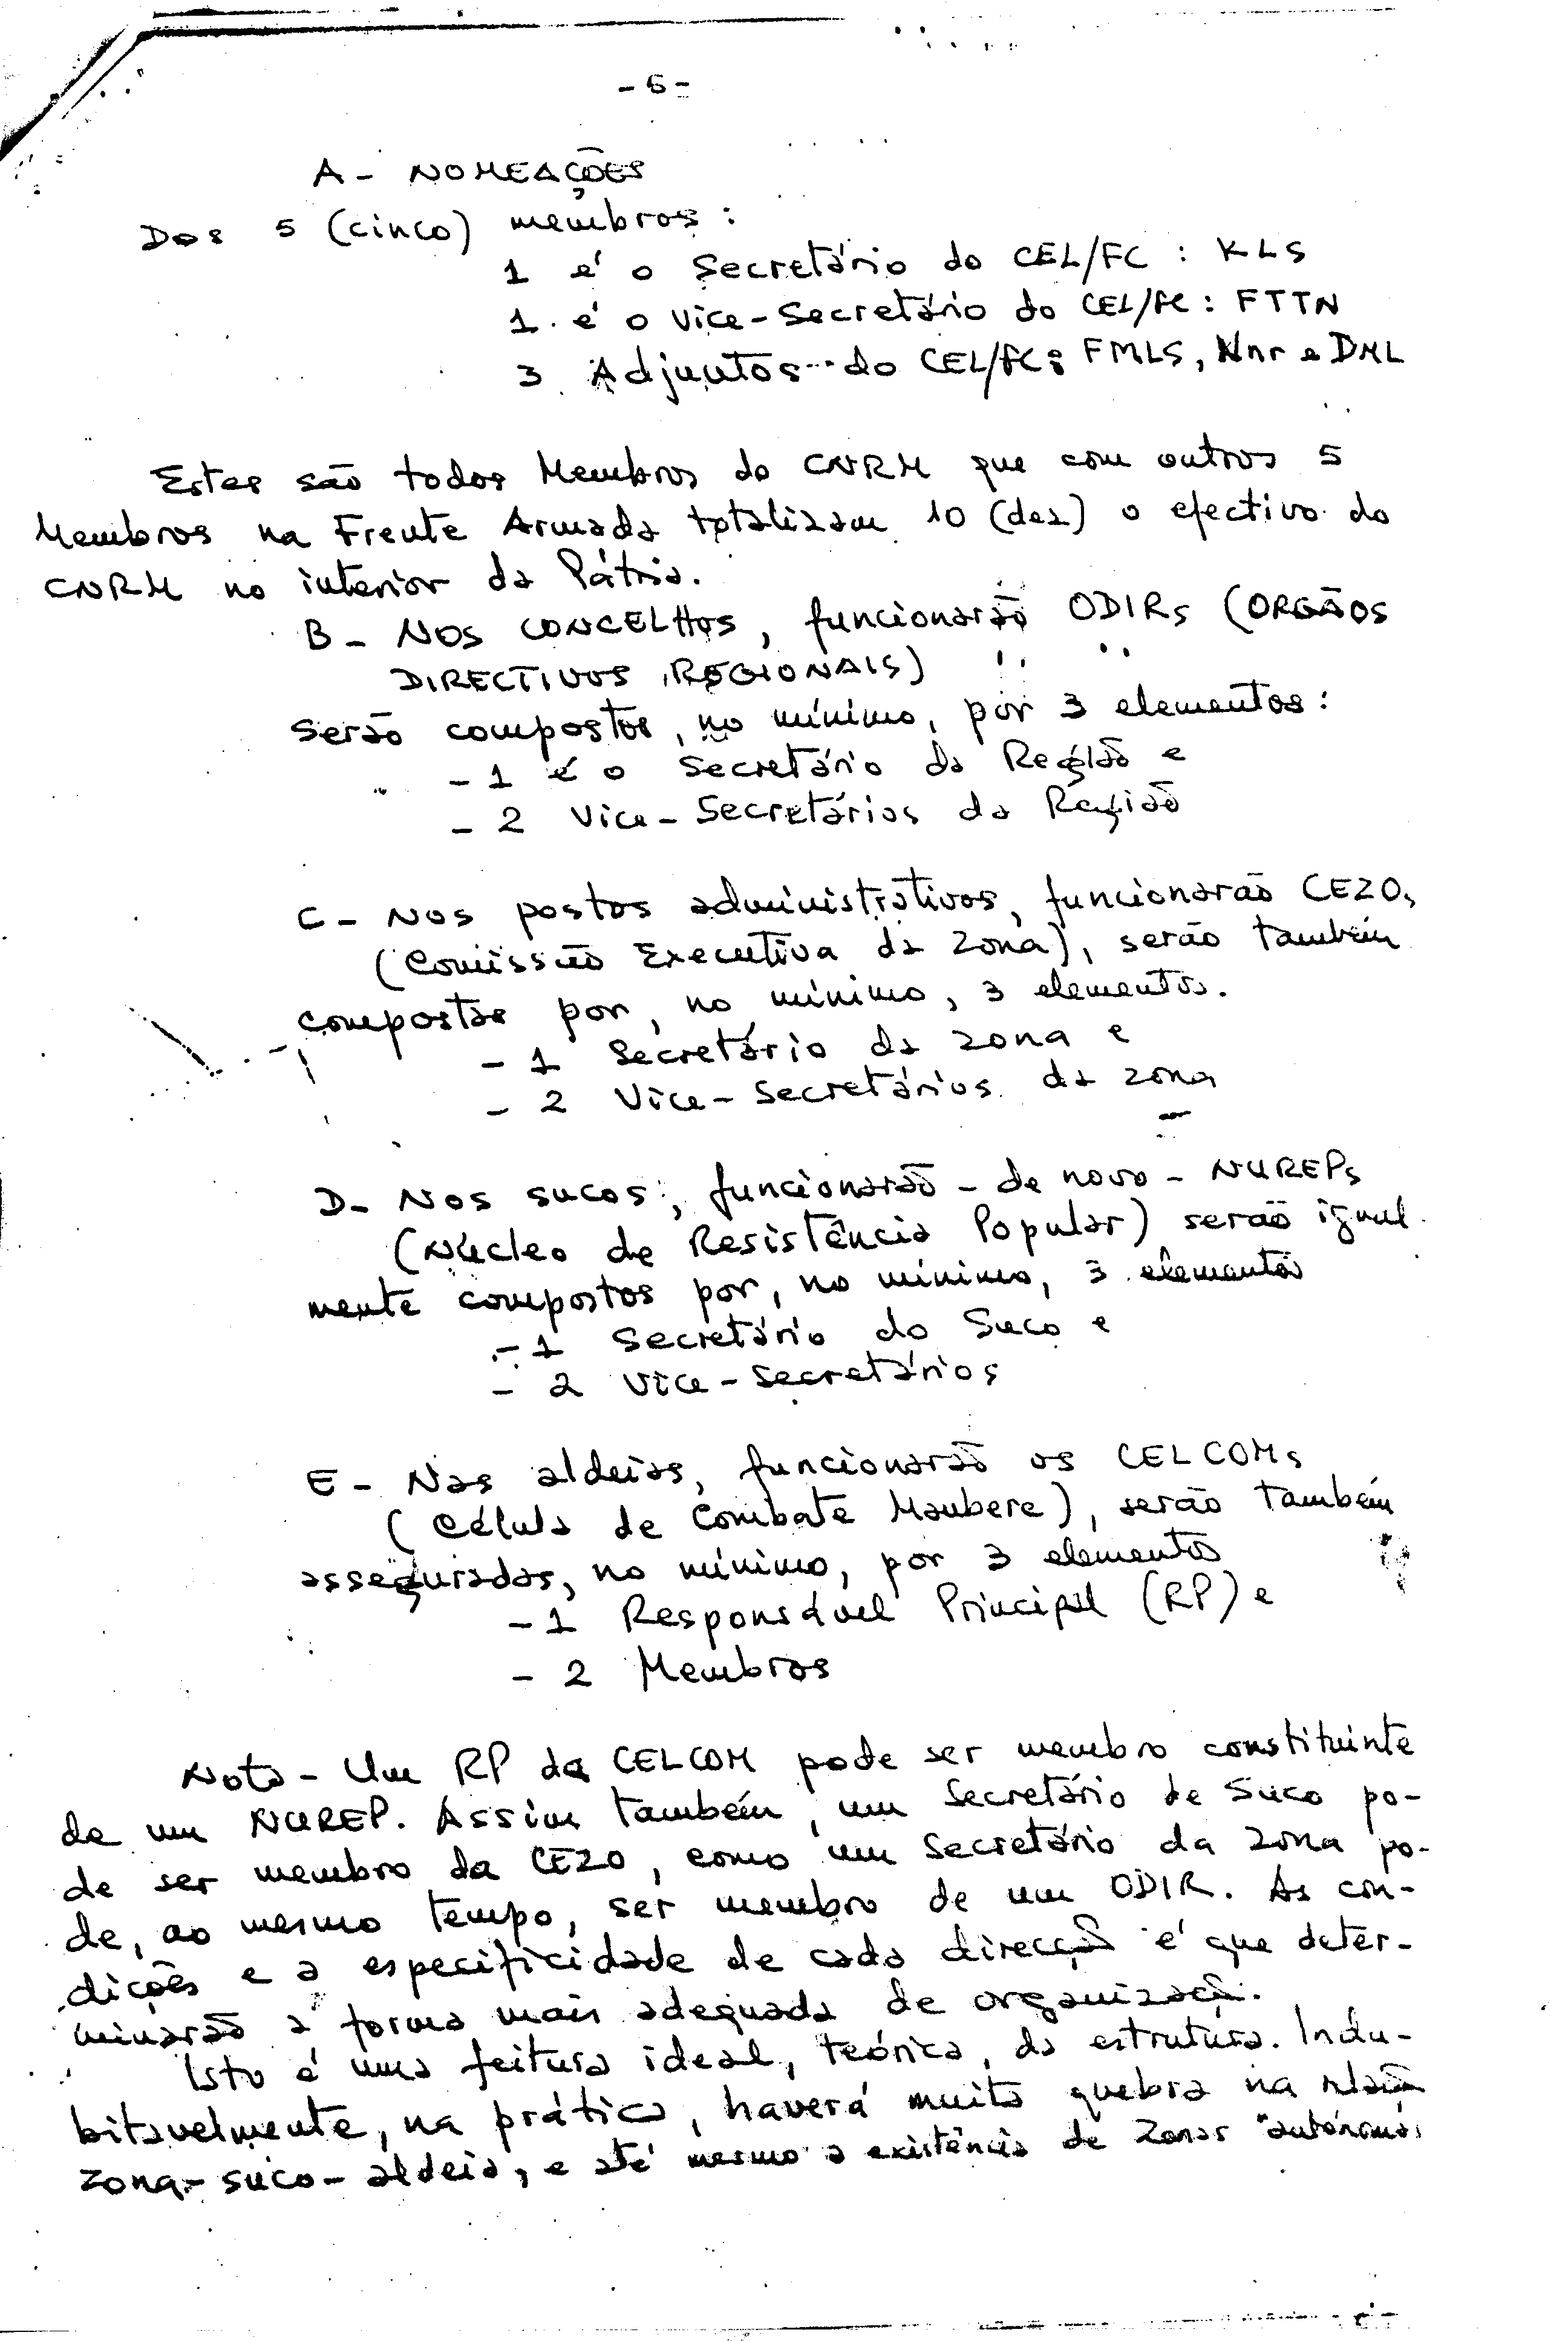 - 6 -
A - NOMEAÇÕES
Dos 5 (cinco) membros :
1 é o Secretário do CEL/FC : KLS
1 é o Vice-Secretário do CEL/FC : FTTN
3 Adjuntos do CEL/FC : FMLS, Nnr e DML
Estes são todos Membros do CNRM que com outros 5
Membros na Frente Armada totalizam 10 (dez) o efectivo do
CNRM no interior da Pátria.
B - NOS CONCELHOS, funcionarão ODIRs (ORGÃOS
DIRECTIVOS REGIONAIS)
Serão compostos, no mínimo, por 3 elementos :
- 1 é o Secretário da Região e
- 2 Vice-Secretários da Região
C - Nos postos administrativos, funcionarão CEZOs
(Comissão Executiva da Zona), serão também
compostas por, no mínimo, 3 elementos.
- 1 Secretário da zona e
- 2 Vice-Secretários da zona
D - Nos sucos, funcionarão - de novo - NUREPs
(Núcleo de Resistência Popular) serão igual
mente compostos por, no mínimo, 3 elementos
- 1 Secretário do Suco e
- 2 Vice-Secretários
E - Nas aldeias, funcionarão os CELCOMs
(Célula de Combate Maubere), serão também
asseguradas, no mínimo, por 3 elementos
- 1 Responsável Principal (RP) e
- 2 Membros
Nota - Um RP da CELCOM pode ser membro constituinte
de um NUREP. Assim também, um Secretário de Suco po-
de ser membro da CEZO, como um Secretário da Zona po-
de, ao mesmo tempo, ser membro de um ODIR. As con-
dições e a especificidade de cada direcção é que deter-
minarão a forma mais adequada de organização.
Isto é uma feitura ideal, teórica, da estrutura. Indu-
bitavelmente, na prática, haverá muita quebra na relação
zona-suco-aldeia, e até mesmo a existência de Zonas "autónomas